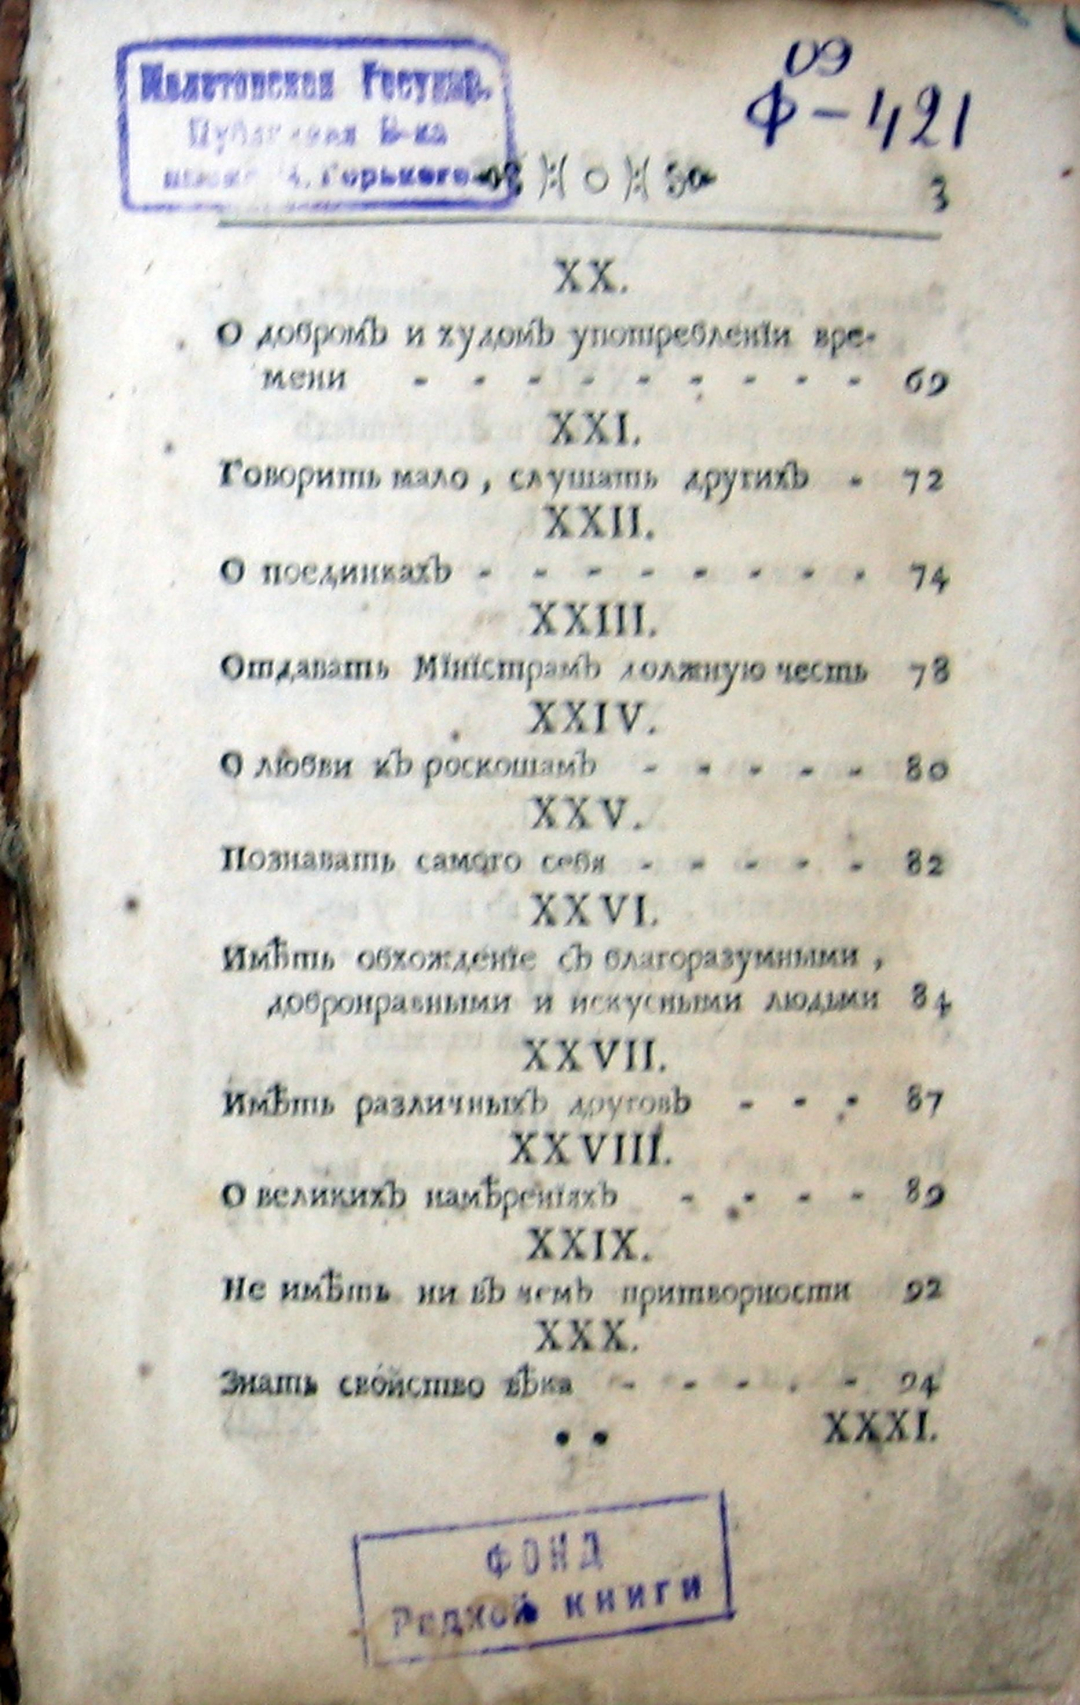 09
Ф-421
Государ.
Публичная Б-ка
М. Горького
3
XX.
О добромъ и худомъ употребленїи вре-
мени - - - - - - - - - 69
XXI.
Говорить мало, слушать другихъ - 72
XXII.
О поединкахъ - - - - - - - - 74
XXIII.
Отдавать Мїнїстрамъ должную честь 78
XXIV.
О любви къ роскошамъ - - - - - 80
XXV.
Познавать самого себя - - - - - 82
XXVI.
Имѣть обхожденїе съ благоразумными,
добронравными и искусными людьми 84
XXVII.
Имѣть различныхъ друговъ - - - 87
XXVIII.
О великихъ намѣренїяхъ - - - - 89
XXIX.
Не имѣть ни въ чемъ притворности 92
XXX.
Знать свойство вѣка - - - - - 94
XXXI.
ФОНД
Редкой книги